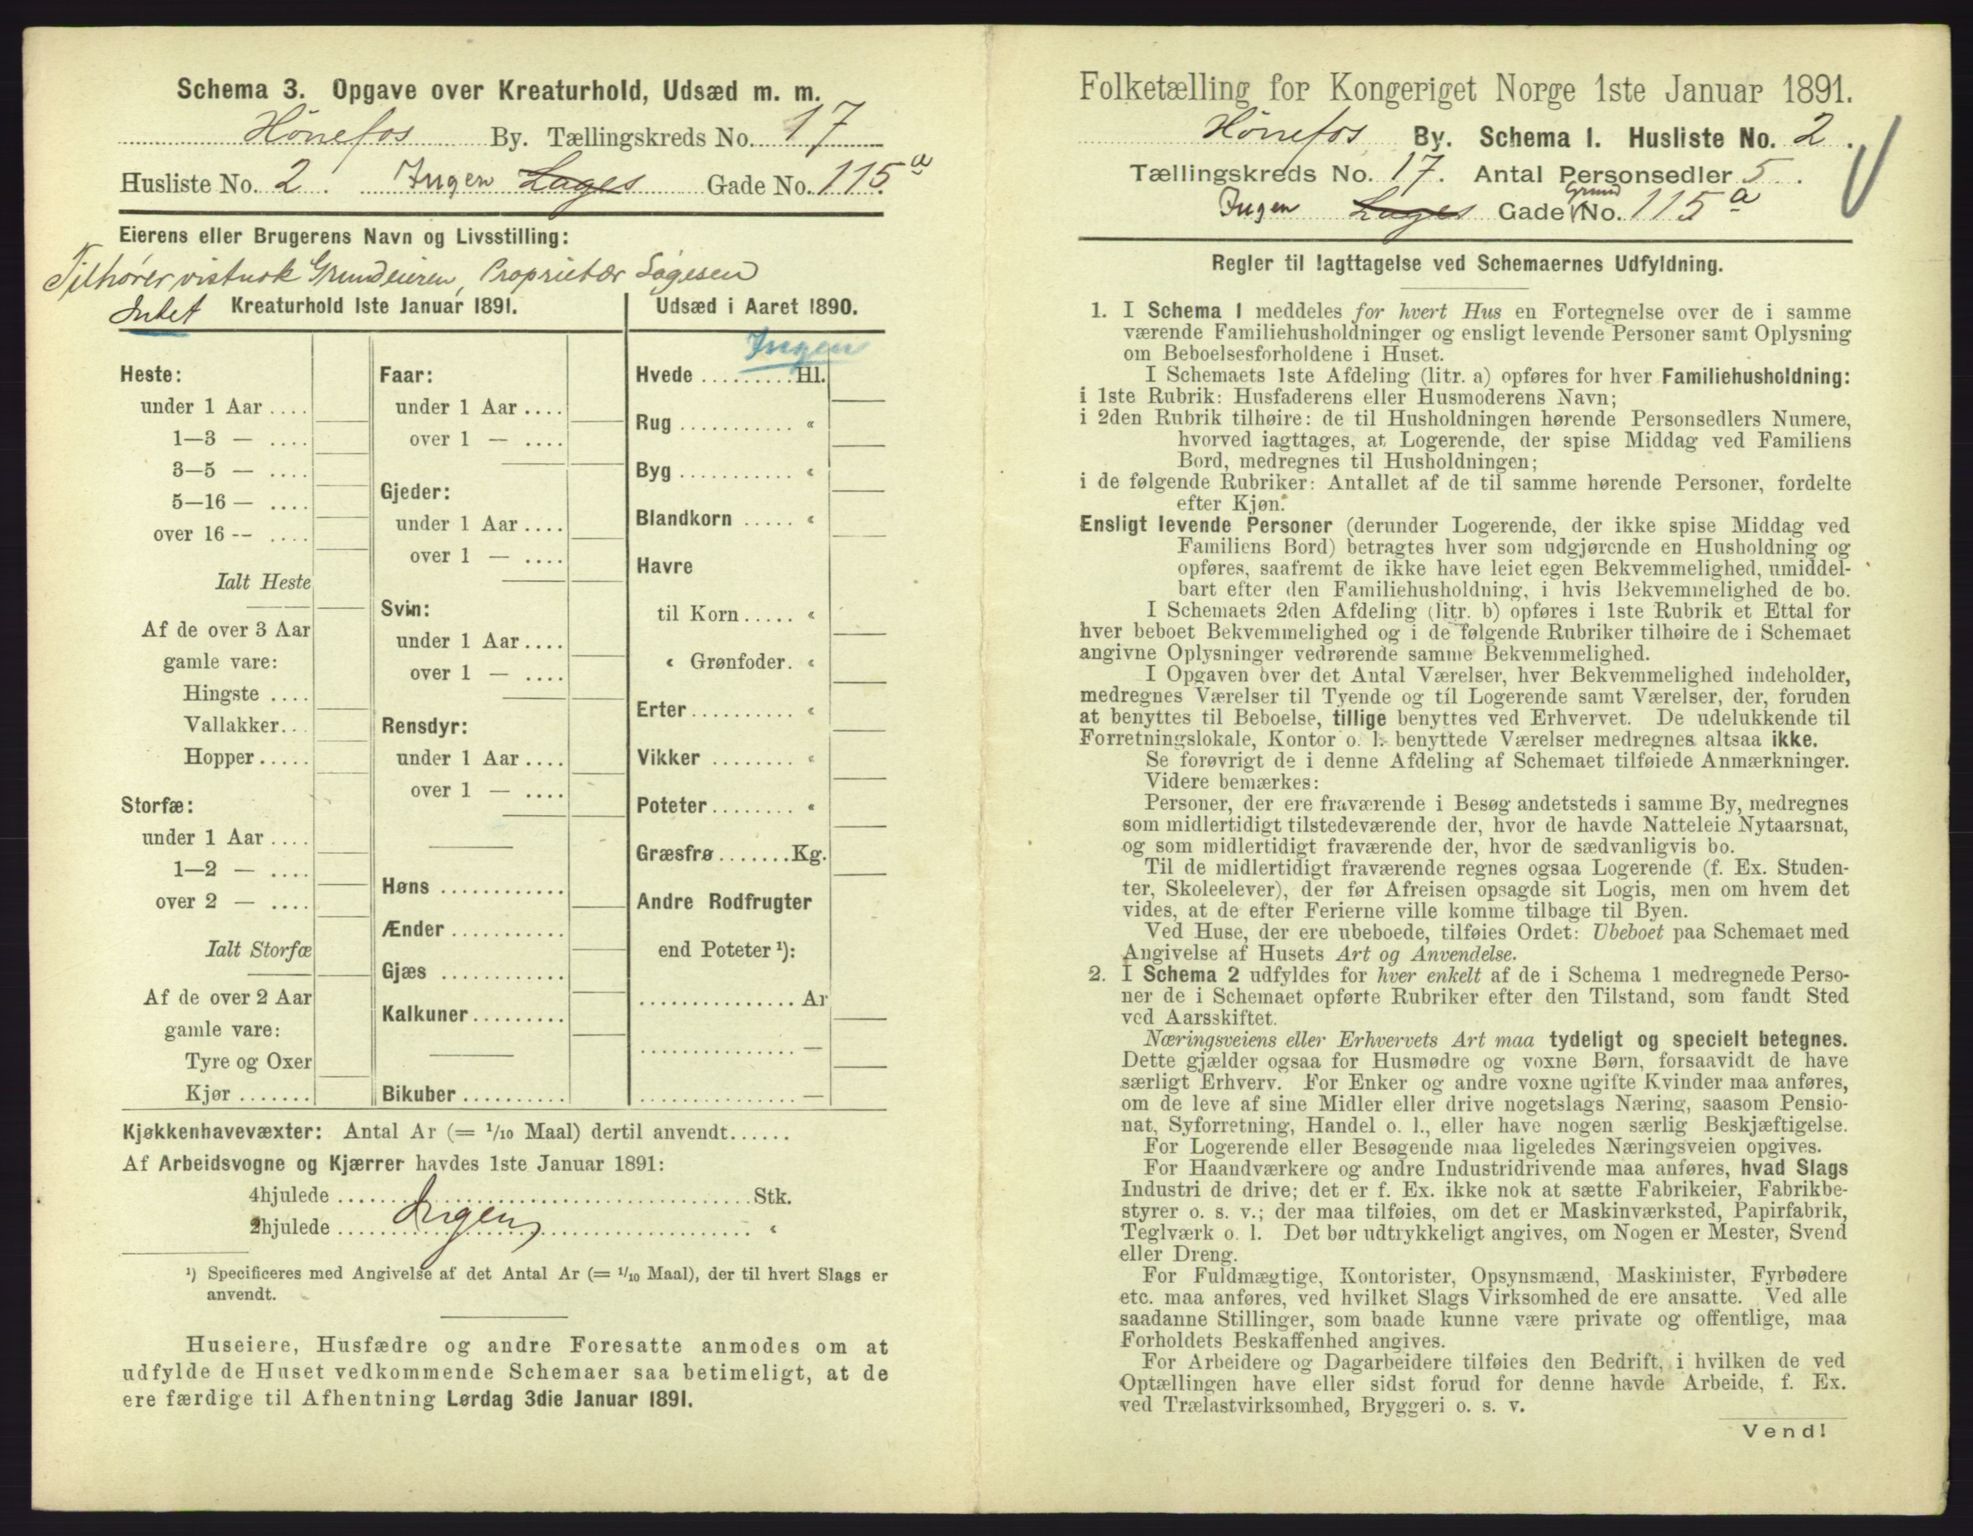 Schema 3. Opgave over Kreaturhold, Udsæd m. m.
Hønefos By. Tællingskreds No. 17
Husliste No. 2. Ingen Lages Gade No. 115 a
Eierens eller Brugerens Navn og Livsstilling:
Tilhører vistnok Grundeieren, Proprietær Løgesen
Intet Kreaturhold 1ste Januar 1891.
Heste:
under 1 Aar ....
1—3 — ....
3—5 — ....
5—16 — ....
over 16 -- ....
Ialt Heste
Af de over 3 Aar
gamle vare:
Hingste ....
Vallakker...
Hopper.....
Storfæ:
under 1 Aar ....
1—2 — ....
over 2 — ....
Ialt Storfæ
Af de over 2 Aar
gamle vare:
Tyre og Oxer
Kjør .......
Faar:
under 1 Aar ....
over 1 — ....
Gjeder:
under 1 Aar ....
over 1 — ....
Svin:
under 1 Aar ....
over 1 — ....
Rensdyr:
under 1 Aar ....
over 1 — ....
Høns ............
Ænder ...........
Gjæs ............
Kalkuner.........
Bikuber ..........
Udsæd i Aaret 1890.
Ingen
Hvede .........Hl.
Rug .......... «
Byg .......... «
Blandkorn ..... «
Havre
til Korn..... «
« Grønfoder. «
Erter......... «
Vikker ....... «
Poteter....... «
Græsfrø.......Kg.
Andre Rodfrugter
end Poteter ¹):
............... Ar
............... —
............... —
Kjøkkenhavevæxter: Antal Ar (= 1/10 Maal) dertil anvendt......
Af Arbeidsvogne og Kjærrer havdes 1ste Januar 1891:
4hjulede ........................................Stk.
2hjulede ... Ingen ........................ «
¹) Specificeres med Angivelse af det Antal Ar (= 1/10 Maal), der til hvert Slags er
anvendt.
Huseiere, Husfædre og andre Foresatte anmodes om at
udfylde de Huset vedkommende Schemaer saa betimeligt, at de
ere færdige til Afhentning Lørdag 3die Januar 1891.
Folketælling for Kongeriget Norge 1ste Januar 1891.
Hønefos By. Schema 1. Husliste No. 2.
Tællingskreds No. 17. Antal Personsedler 5.
Ingen Lages Gade Grund No. 115 a
Regler til Iagttagelse ved Schemaernes Udfyldning.
1. I Schema 1 meddeles for hvert Hus en Fortegnelse over de i samme
værende Familiehusholdninger og ensligt levende Personer samt Oplysning
om Beboelsesforholdene i Huset.
I Schemaets 1ste Afdeling (litr. a) opføres for hver Familiehusholdning:
i 1ste Rubrik: Husfaderens eller Husmoderens Navn;
i 2den Rubrik tilhøire: de til Husholdningen hørende Personsedlers Numere,
hvorved iagttages, at Logerende, der spise Middag ved Familiens
Bord, medregnes til Husholdningen;
i de følgende Rubriker: Antallet af de til samme hørende Personer, fordelte
efter Kjøn.
Ensligt levende Personer (derunder Logerende, der ikke spise Middag ved
Familiens Bord) betragtes hver som udgjørende en Husholdning og
opføres, saafremt de ikke have leiet egen Bekvemmelighed, umiddel-
bart efter den Familiehusholdning, i hvis Bekvemmelighed de bo.
I Schemaets 2den Afdeling (litr. b) opføres i 1ste Rubrik et Ettal for
hver beboet Bekvemmelighed og i de følgende Rubriker tilhøire de i Schemaet
angivne Oplysninger vedrørende samme Bekvemmelighed.
I Opgaven over det Antal Værelser, hver Bekvemmelighed indeholder,
medregnes Værelser til Tyende og til Logerende samt Værelser, der, foruden
at benyttes til Beboelse, tillige benyttes ved Erhvervet. De udelukkende til
Forretningslokale, Kontor o. l. benyttede Værelser medregnes altsaa ikke.
Se forøvrigt de i denne Afdeling af Schemaet tilføiede Anmærkninger.
Videre bemærkes:
Personer, der ere fraværende i Besøg andetsteds i samme By, medregnes
som midlertidigt tilstedeværende der, hvor de havde Natteleie Nytaarsnat,
og som midlertidigt fraværende der, hvor de sædvanligvis bo.
Til de midlertidigt fraværende regnes ogsaa Logerende (f. Ex. Studen-
ter, Skoleelever), der før Afreisen opsagde sit Logis, men om hvem det
vides, at de efter Ferierne ville komme tilbage til Byen.
Ved Huse, der ere ubeboede, tilføies Ordet: Ubeboet paa Schemaet med
Angivelse af Husets Art og Anvendelse.
2. I Schema 2 udfyldes for hver enkelt af de i Schema 1 medregnede Perso-
ner de i Schemaet opførte Rubriker efter den Tilstand, som fandt Sted
ved Aarsskiftet.
Næringsveiens eller Erhvervets Art maa tydeligt og specielt betegnes.
Dette gjælder ogsaa for Husmødre og voxne Børn, forsaavidt de have
særligt Erhverv. For Enker og andre voxne ugifte Kvinder maa anføres,
om de leve af sine Midler eller drive nogetslags Næring, saasom Pensio-
nat, Syforretning, Handel o. l., eller have nogen særlig Beskjæftigelse.
For Logerende eller Besøgende maa ligeledes Næringsveien opgives.
For Haandværkere og andre Industridrivende maa anføres, hvad Slags
Industri de drive; det er f. Ex. ikke nok at sætte Fabrikeier, Fabrikbe-
styrer o. s. v.; der maa tilføies, om det er Maskinværksted, Papirfabrik,
Teglværk o. l. Det bør udtrykkeligt angives, om Nogen er Mester, Svend
eller Dreng.
For Fuldmægtige, Kontorister, Opsynsmænd, Maskinister, Fyrbødere
etc. maa anføres, ved hvilket Slags Virksomhed de ere ansatte. Ved alle
saadanne Stillinger, som baade kunne være private og offentlige, maa
Forholdets Beskaffenhed angives.
For Arbeidere og Dagarbeidere tilføies den Bedrift, i hvilken de ved
Optællingen have eller sidst forud for denne havde Arbeide, f. Ex.
ved Trælastvirksomhed, Bryggeri o. s. v.
Vend!